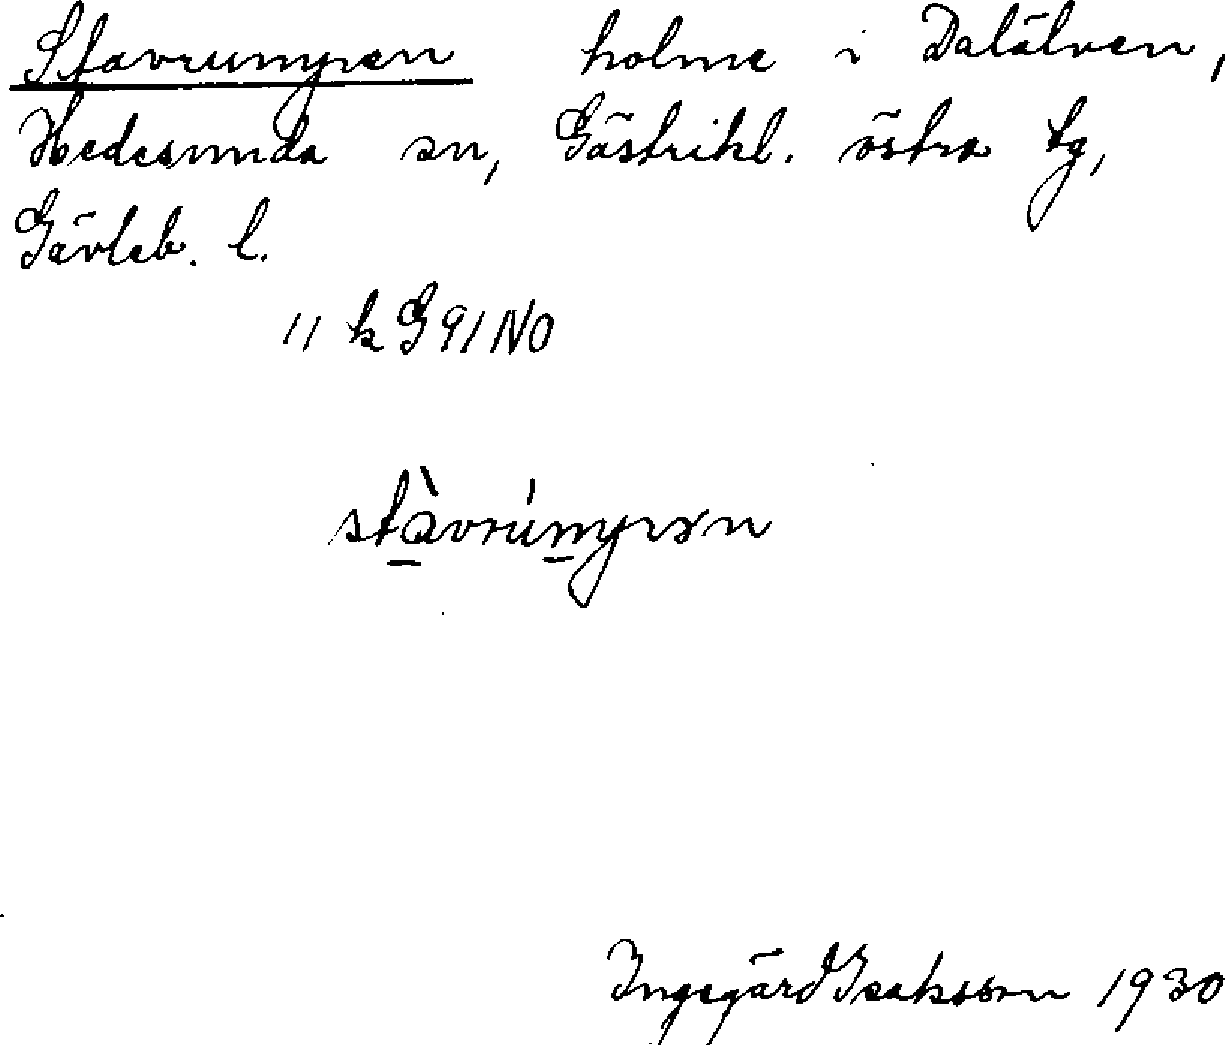 Stavrumpen holme i Dalälven,
Hedesunda sn, Gästrikl. östra tg,
Gävleb. l.
11 k G 91 NO
stàvrúmpən
Ingegärd Isaksson 1930